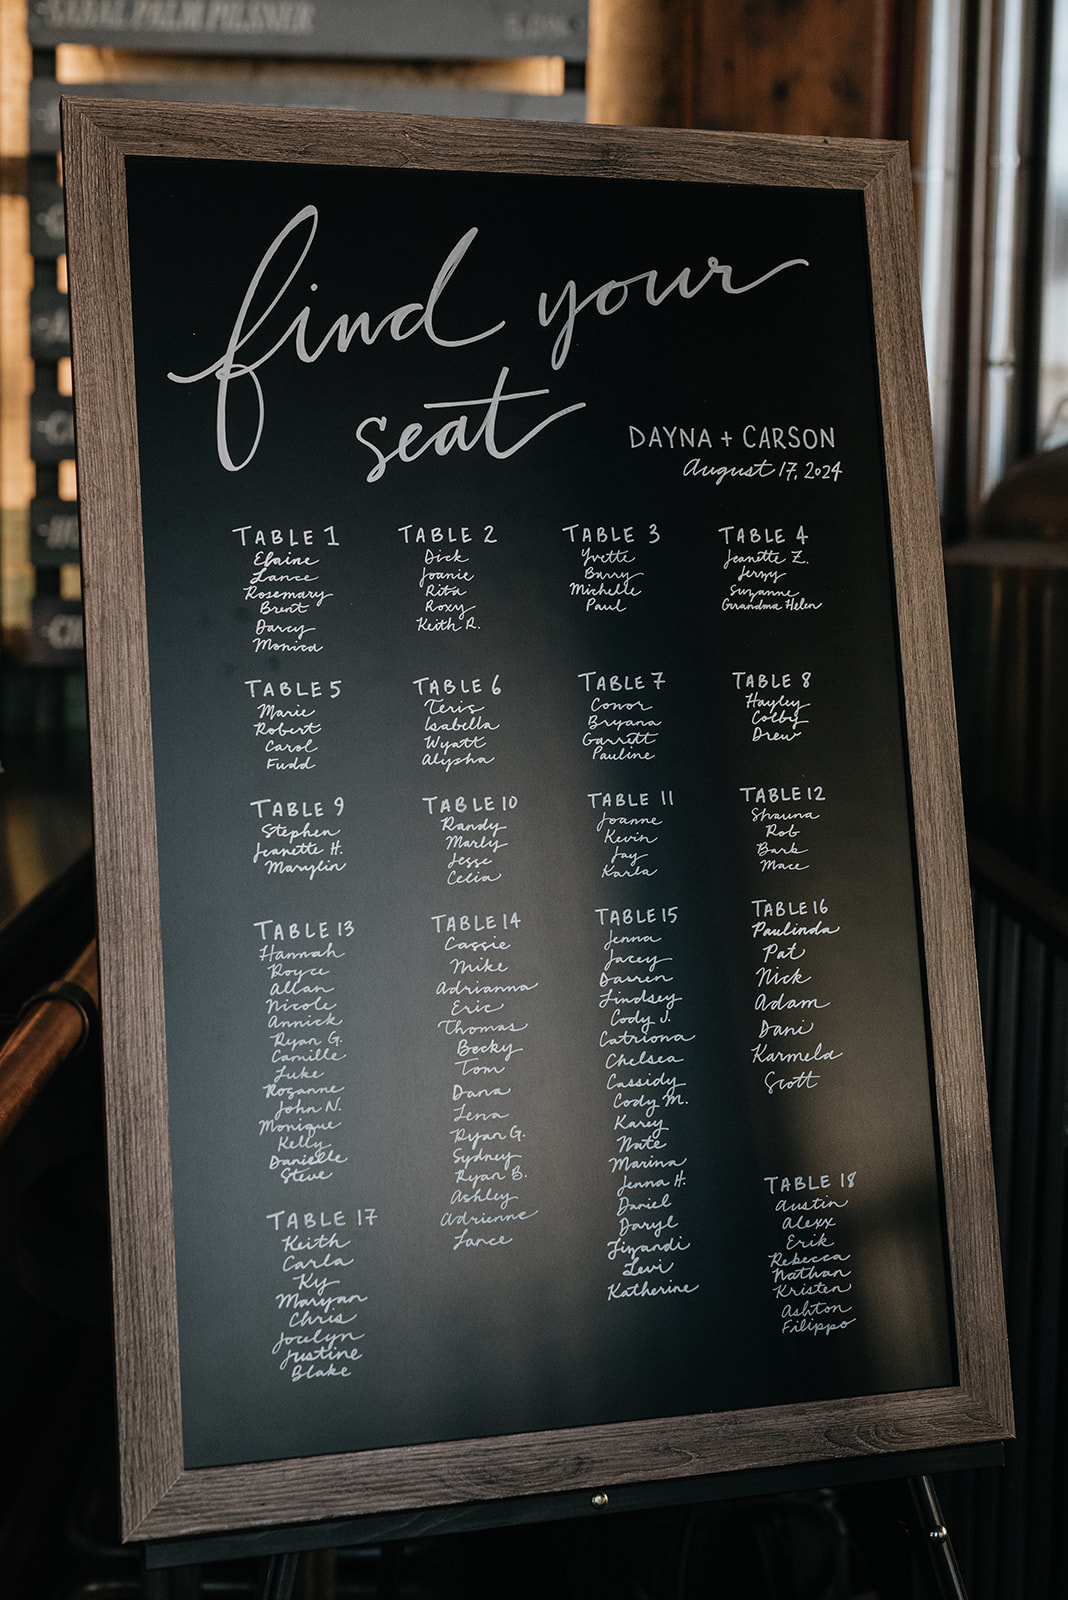 SABAL PALM PILSNER 5.0%
find your
seat
DAYNA + CARSON
August 17, 2024
TABLE 1
Elaine
Lance
Rosemary
Brent
Darcy
Monica
TABLE 2
Dick
Joanie
Rita
Roxy
Keith R.
TABLE 3
Yvette
Barry
Michelle
Paul
TABLE 4
Jeanette Z.
Jerzy
Suzanne
Grandma Helen
TABLE 5
Marie
Robert
Carol
Fudd
TABLE 6
Teris
Isabella
Wyatt
Alysha
TABLE 7
Conor
Bryana
Garrett
Pauline
TABLE 8
Hayley
Colby
Drew
TABLE 9
Stephen
Jeanette H.
Marylin
TABLE 10
Randy
Marly
Jesse
Celia
TABLE 11
Joanne
Kevin
Jay
Karla
TABLE 12
Shauna
Rob
Barb
Mace
TABLE 13
Hannah
Royce
Allan
Nicole
Annick
Ryan G.
Camille
Luke
Rosanne
John N.
Monique
Kelly
Danielle
Steve
TABLE 14
Cassie
Mike
Adrianna
Eric
Thomas
Becky
Tom
Dana
Lena
Ryan G.
Sydney
Ryan B.
Ashley
Adrienne
Lance
TABLE 15
Jenna
Jacey
Darren
Lindsey
Cody J.
Catriona
Chelsea
Cassidy
Cody M.
Karey
Nate
Marina
Jenna H.
Daniel
Daryl
Levi
Katherine
TABLE 16
Paulinda
Pat
Nick
Adam
Dani
Karmela
Scott
TABLE 17
Keith
Carla
Ky
Maryan
Chris
Jocelyn
Justine
Blake
TABLE 18
Austin
Alexx
Erik
Rebecca
Nathan
Kristen
Ashton
Filippo